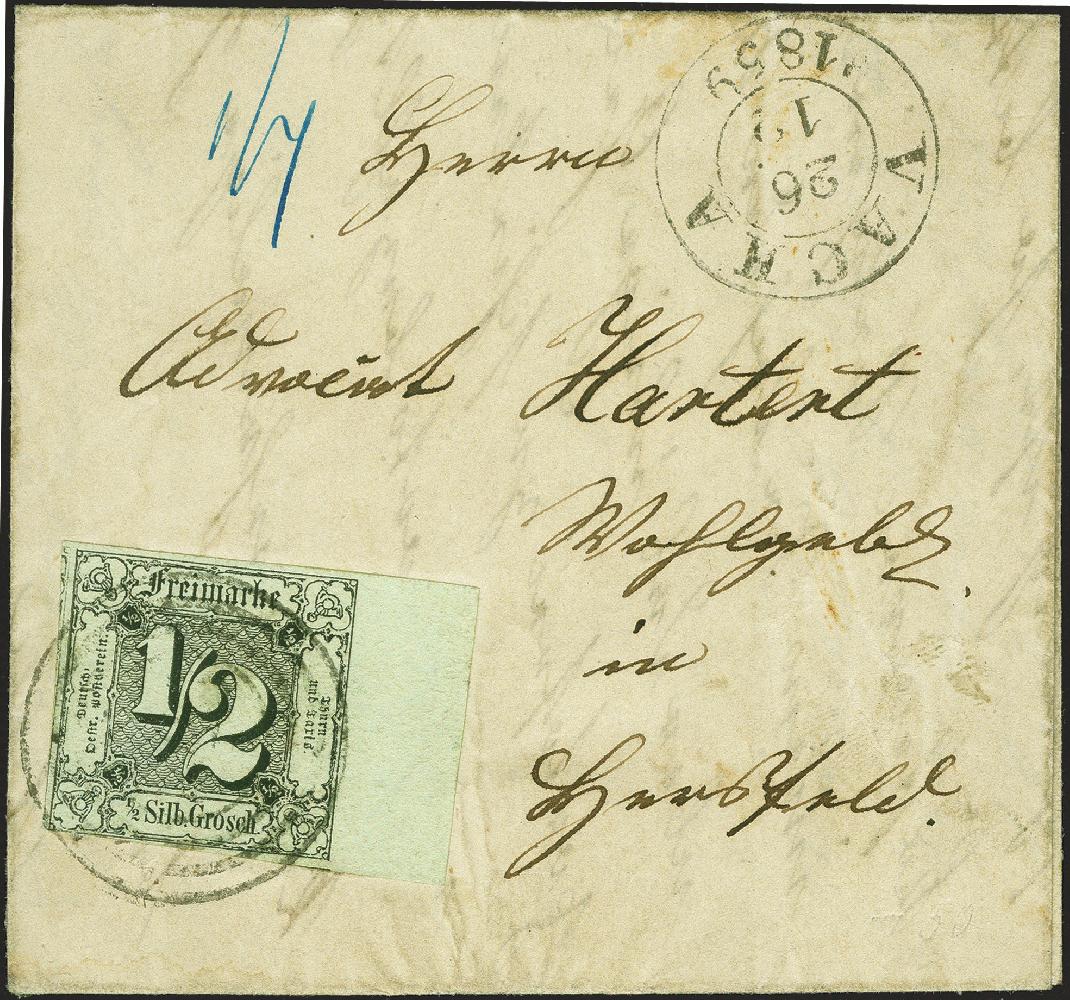 Herrn
Advocat Hartert
Wohlgeb.
in
Hersfeld.
VACHA
26
12
1859
Freimarke
1/2
1/2 Silb. Grosch
Deutsch-
Oestr. Postverein.
Thurn
und Taxis.